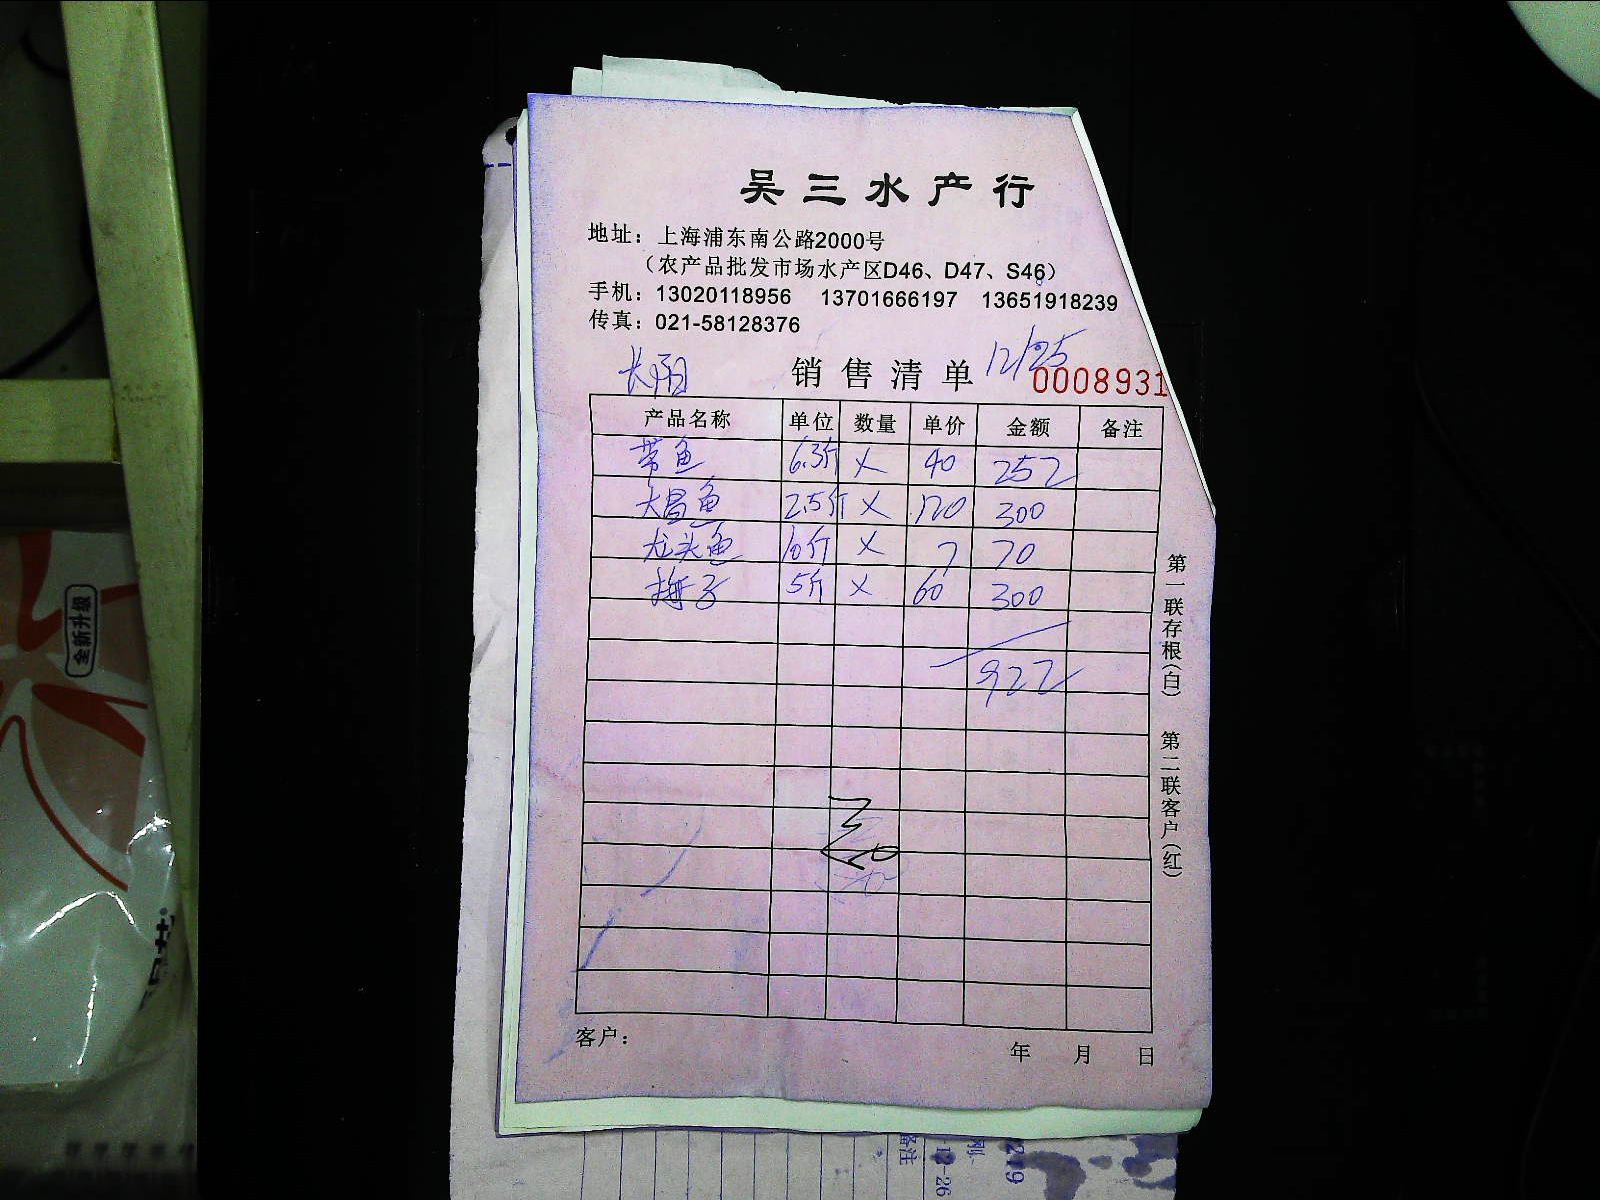 吴三水产行
地址：上海浦东南公路2000号
（农产品批发市场水产区D46、D47、S46）
手机：13020118956 13701666197 13651918239
传真：021-58128376
长阳 销售清单 12/25
0008931
产品名称 单位 数量 单价 金额 备注
带鱼 6.3斤 × 40 252
大昌鱼 2.5斤 × 120 300
龙头鱼 10斤 × 7 70
梅子 5斤 × 60 300
922
第一联存根（白） 第二联客户（红）
客户： 年 月 日
全新升级
备注
12-26
219